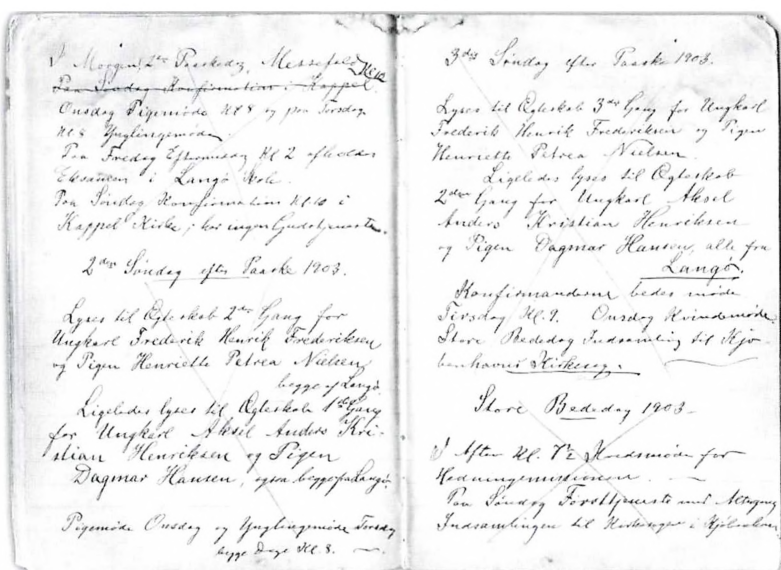 I Morgen, 2den Paaskedag, Messefald Kl 10
Paa Søndag Konfirmation i Kappel
Onsdag Pigemøde Kl 8 og paa Torsdag
Kl 8 Ynglingemøde.
Paa Fredag Eftermiddag Kl 2 afholdes
Eksamen i Langø Skole.
Paa Søndag Konfirmation Kl 10 i
Kappel Kirke; her ingen Gudstjeneste.
2den Søndag efter Paaske 1903.
Lyses til Ægteskab 2den Gang for
Ungkarl Frederik Henrik Frederiksen
og Pigen Henriette Petrea Nielsen
begge af Langø.
Ligeledes lyses til Ægteskab 1ste Gang
for Ungkarl Aksel Anders Kri-
stian Henriksen og Pigen
Dagmar Hansen, ogsaa begge fra Langø.
Pigemøde Onsdag og Ynglingemøde Torsdag
begge Dage Kl. 8.
3die Søndag efter Paaske 1903.
Lyses til Ægteskab 3die Gang for Ungkarl
Frederik Henrik Frederiksen og Pigen
Henriette Petrea Nielsen.
Ligeledes lyses til Ægteskab
2den Gang for Ungkarl Aksel
Anders Kristian Henriksen
og Pigen Dagmar Hansen, alle fra
Langø.
Konfirmanderne bedes møde
Tirsdag Kl. 9. Onsdag Kvindemøde
Store Bededag Indsamling til Kjø-
benhavns Kirkesag.
Store Bededag 1903
I Aften Kl. 7½ Kredsmøde for
Hedningemissionen.
Paa Søndag Førsttjeneste med Altergang
Indsamlingen til Kirkesagen i Kjøbenhavn